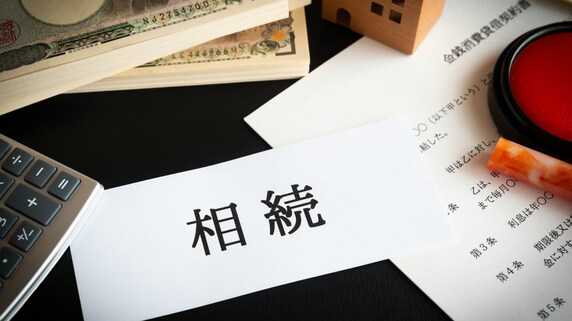 相続
金銭消費貸借契約書
〇〇(以下甲という)と
結した。
甲は乙に対し、
乙は、甲
まで毎月〇
利息は年〇〇
第3条
期限後又は
第4条
金に対す
第5条
N427547OD